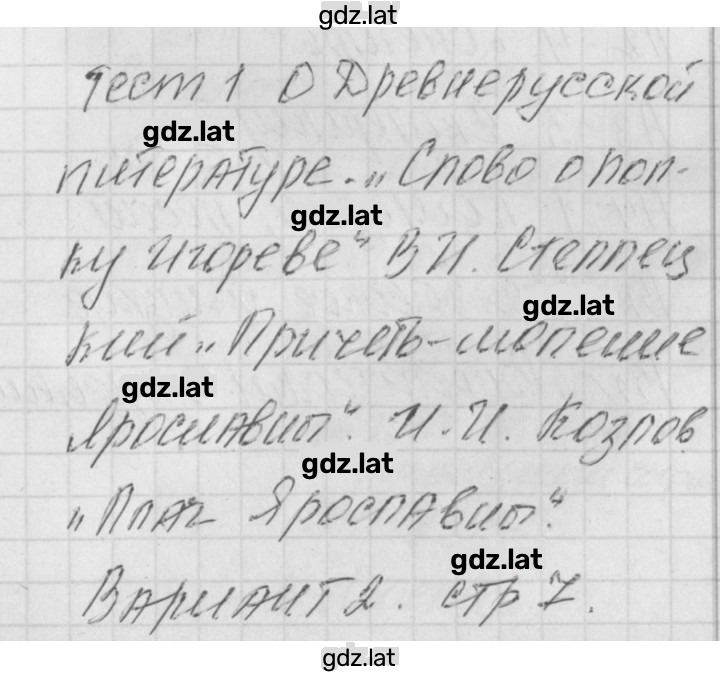 gdz.lat
Тест 1 О Древнерусской
gdz.lat
литературе. „Слово о пол-
gdz.lat
ку Игореве“ В.И. Стеллец
gdz.lat
кий „Причеть-моление
gdz.lat
Ярославны“. И.И. Козлов
gdz.lat
„Плач Ярославны“.
gdz.lat
Вариант 2. стр 7.
gdz.lat